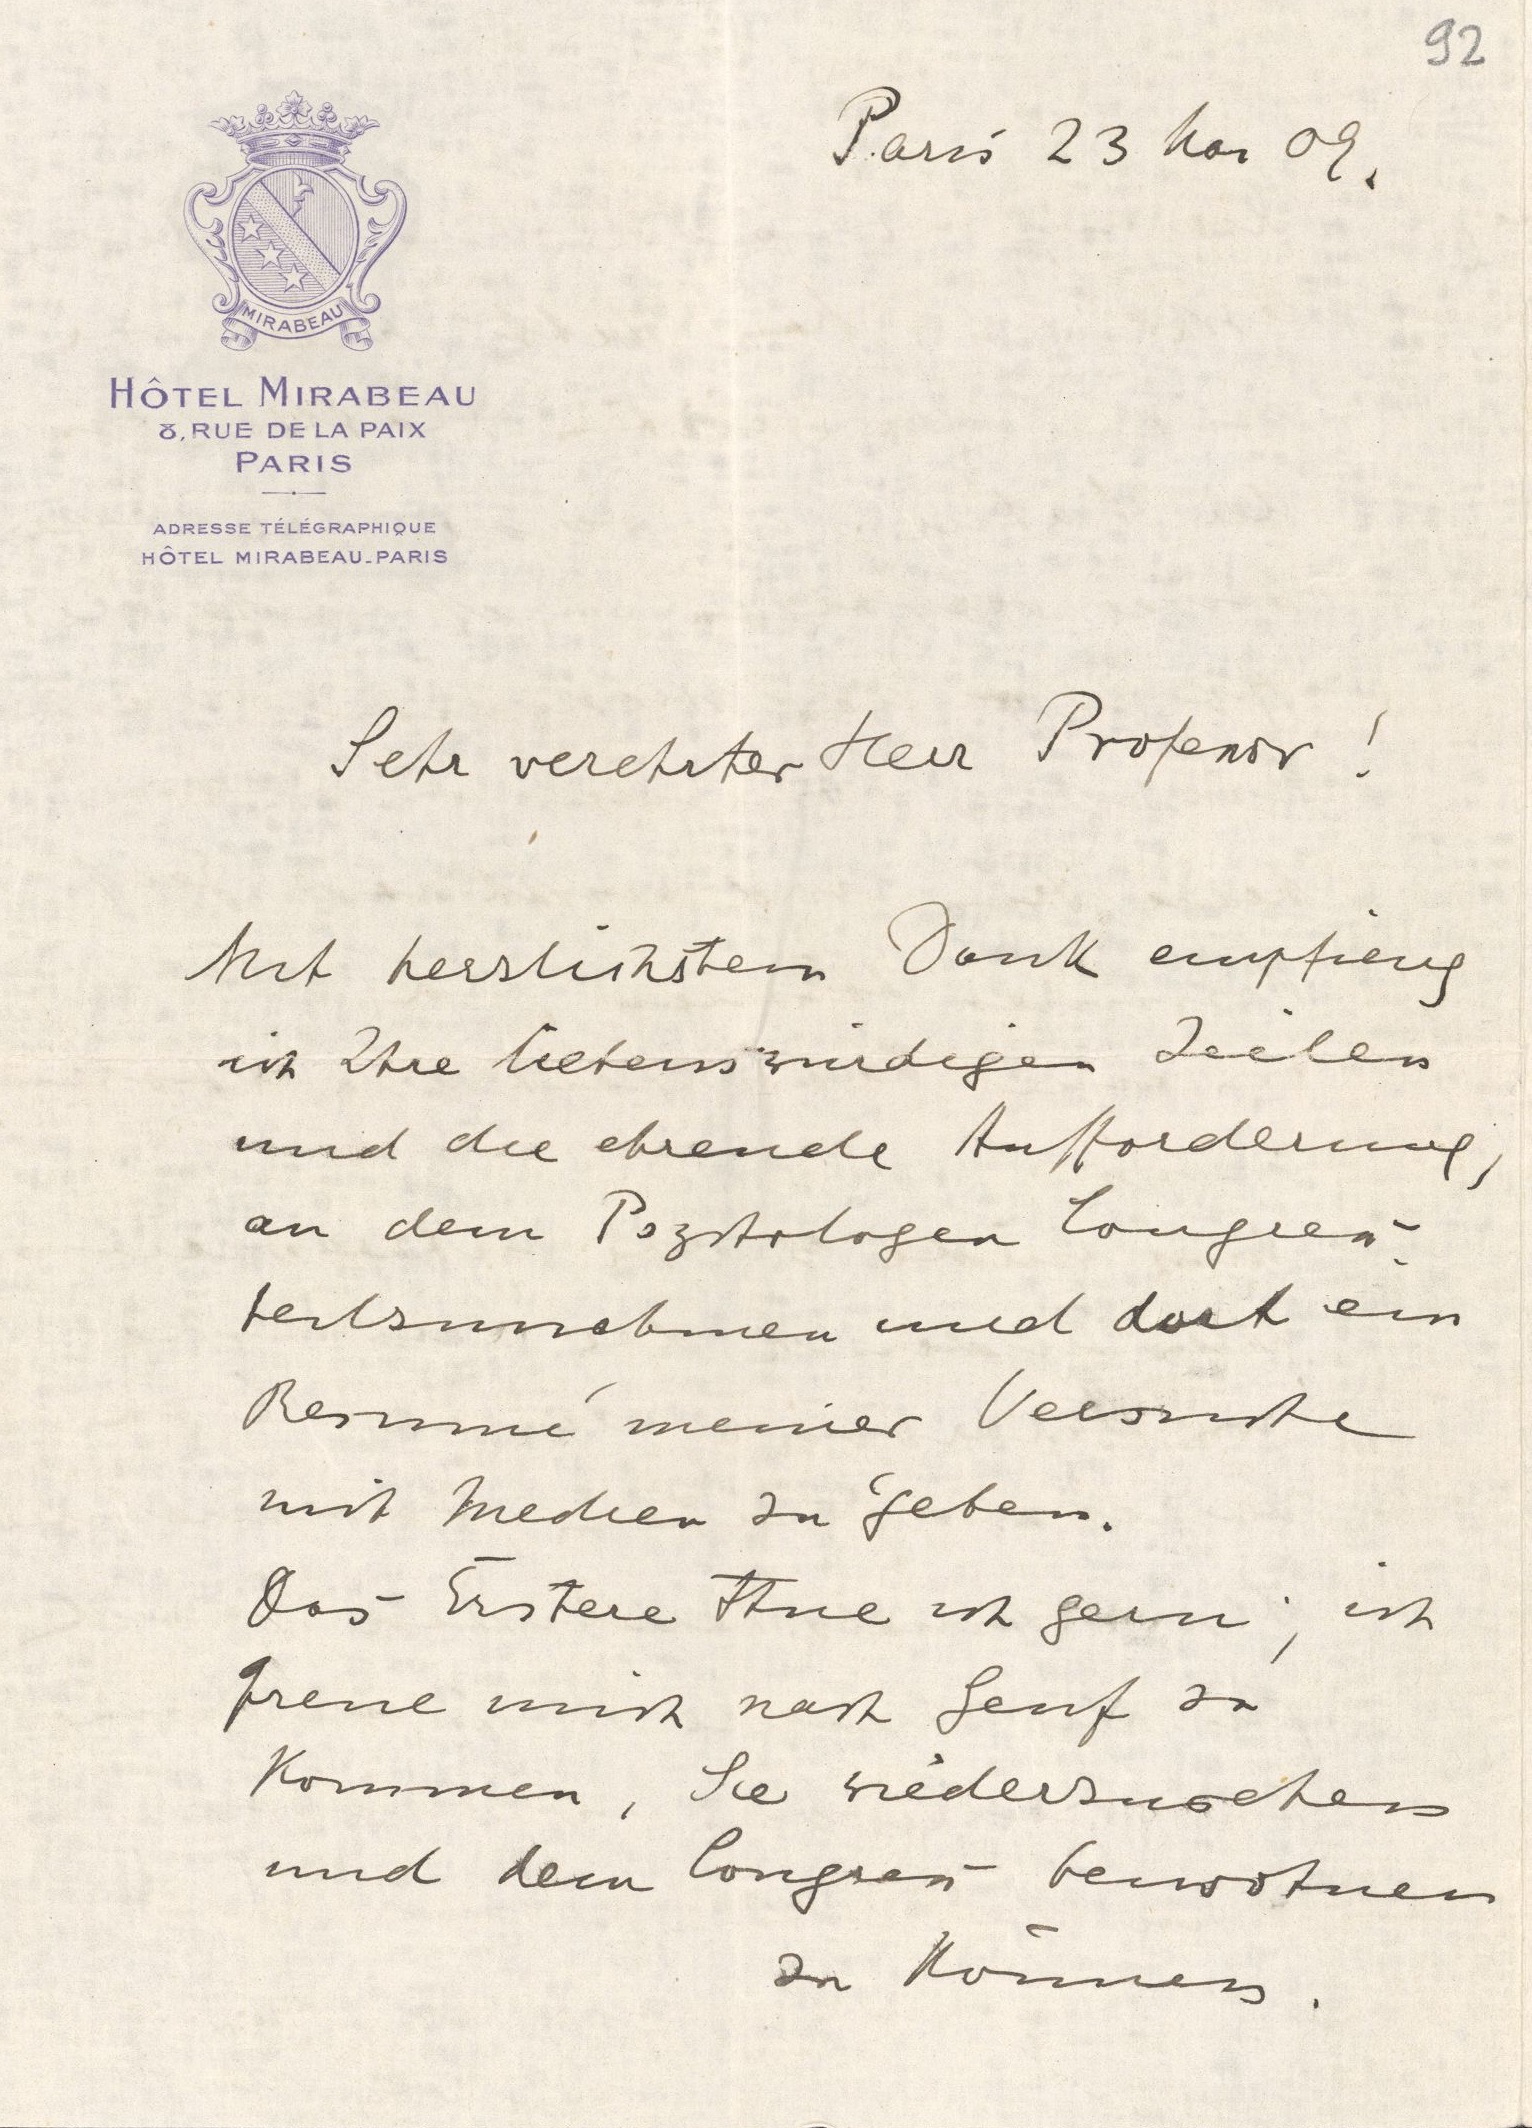 92
Paris 23 Mai 09.
MIRABEAU
HÔTEL MIRABEAU
8, RUE DE LA PAIX
PARIS
ADRESSE TÉLÉGRAPHIQUE
HÔTEL MIRABEAU_PARIS
Sehr verehrter Herr Professor !
Mit herzlichstem Dank empfieng
ich Ihre liebenswürdigen Zeilen
und die ehrende Aufforderung,
an dem Psychologen Congress
teilzunehmen und dort ein
Resumé meiner Versuche
mit Medien zu geben.
Das Erstere thue ich gern; ich
freue mich nach Genf zu
kommen, Sie wiederzusehen
und dem Congress beiwohnen
zu können.